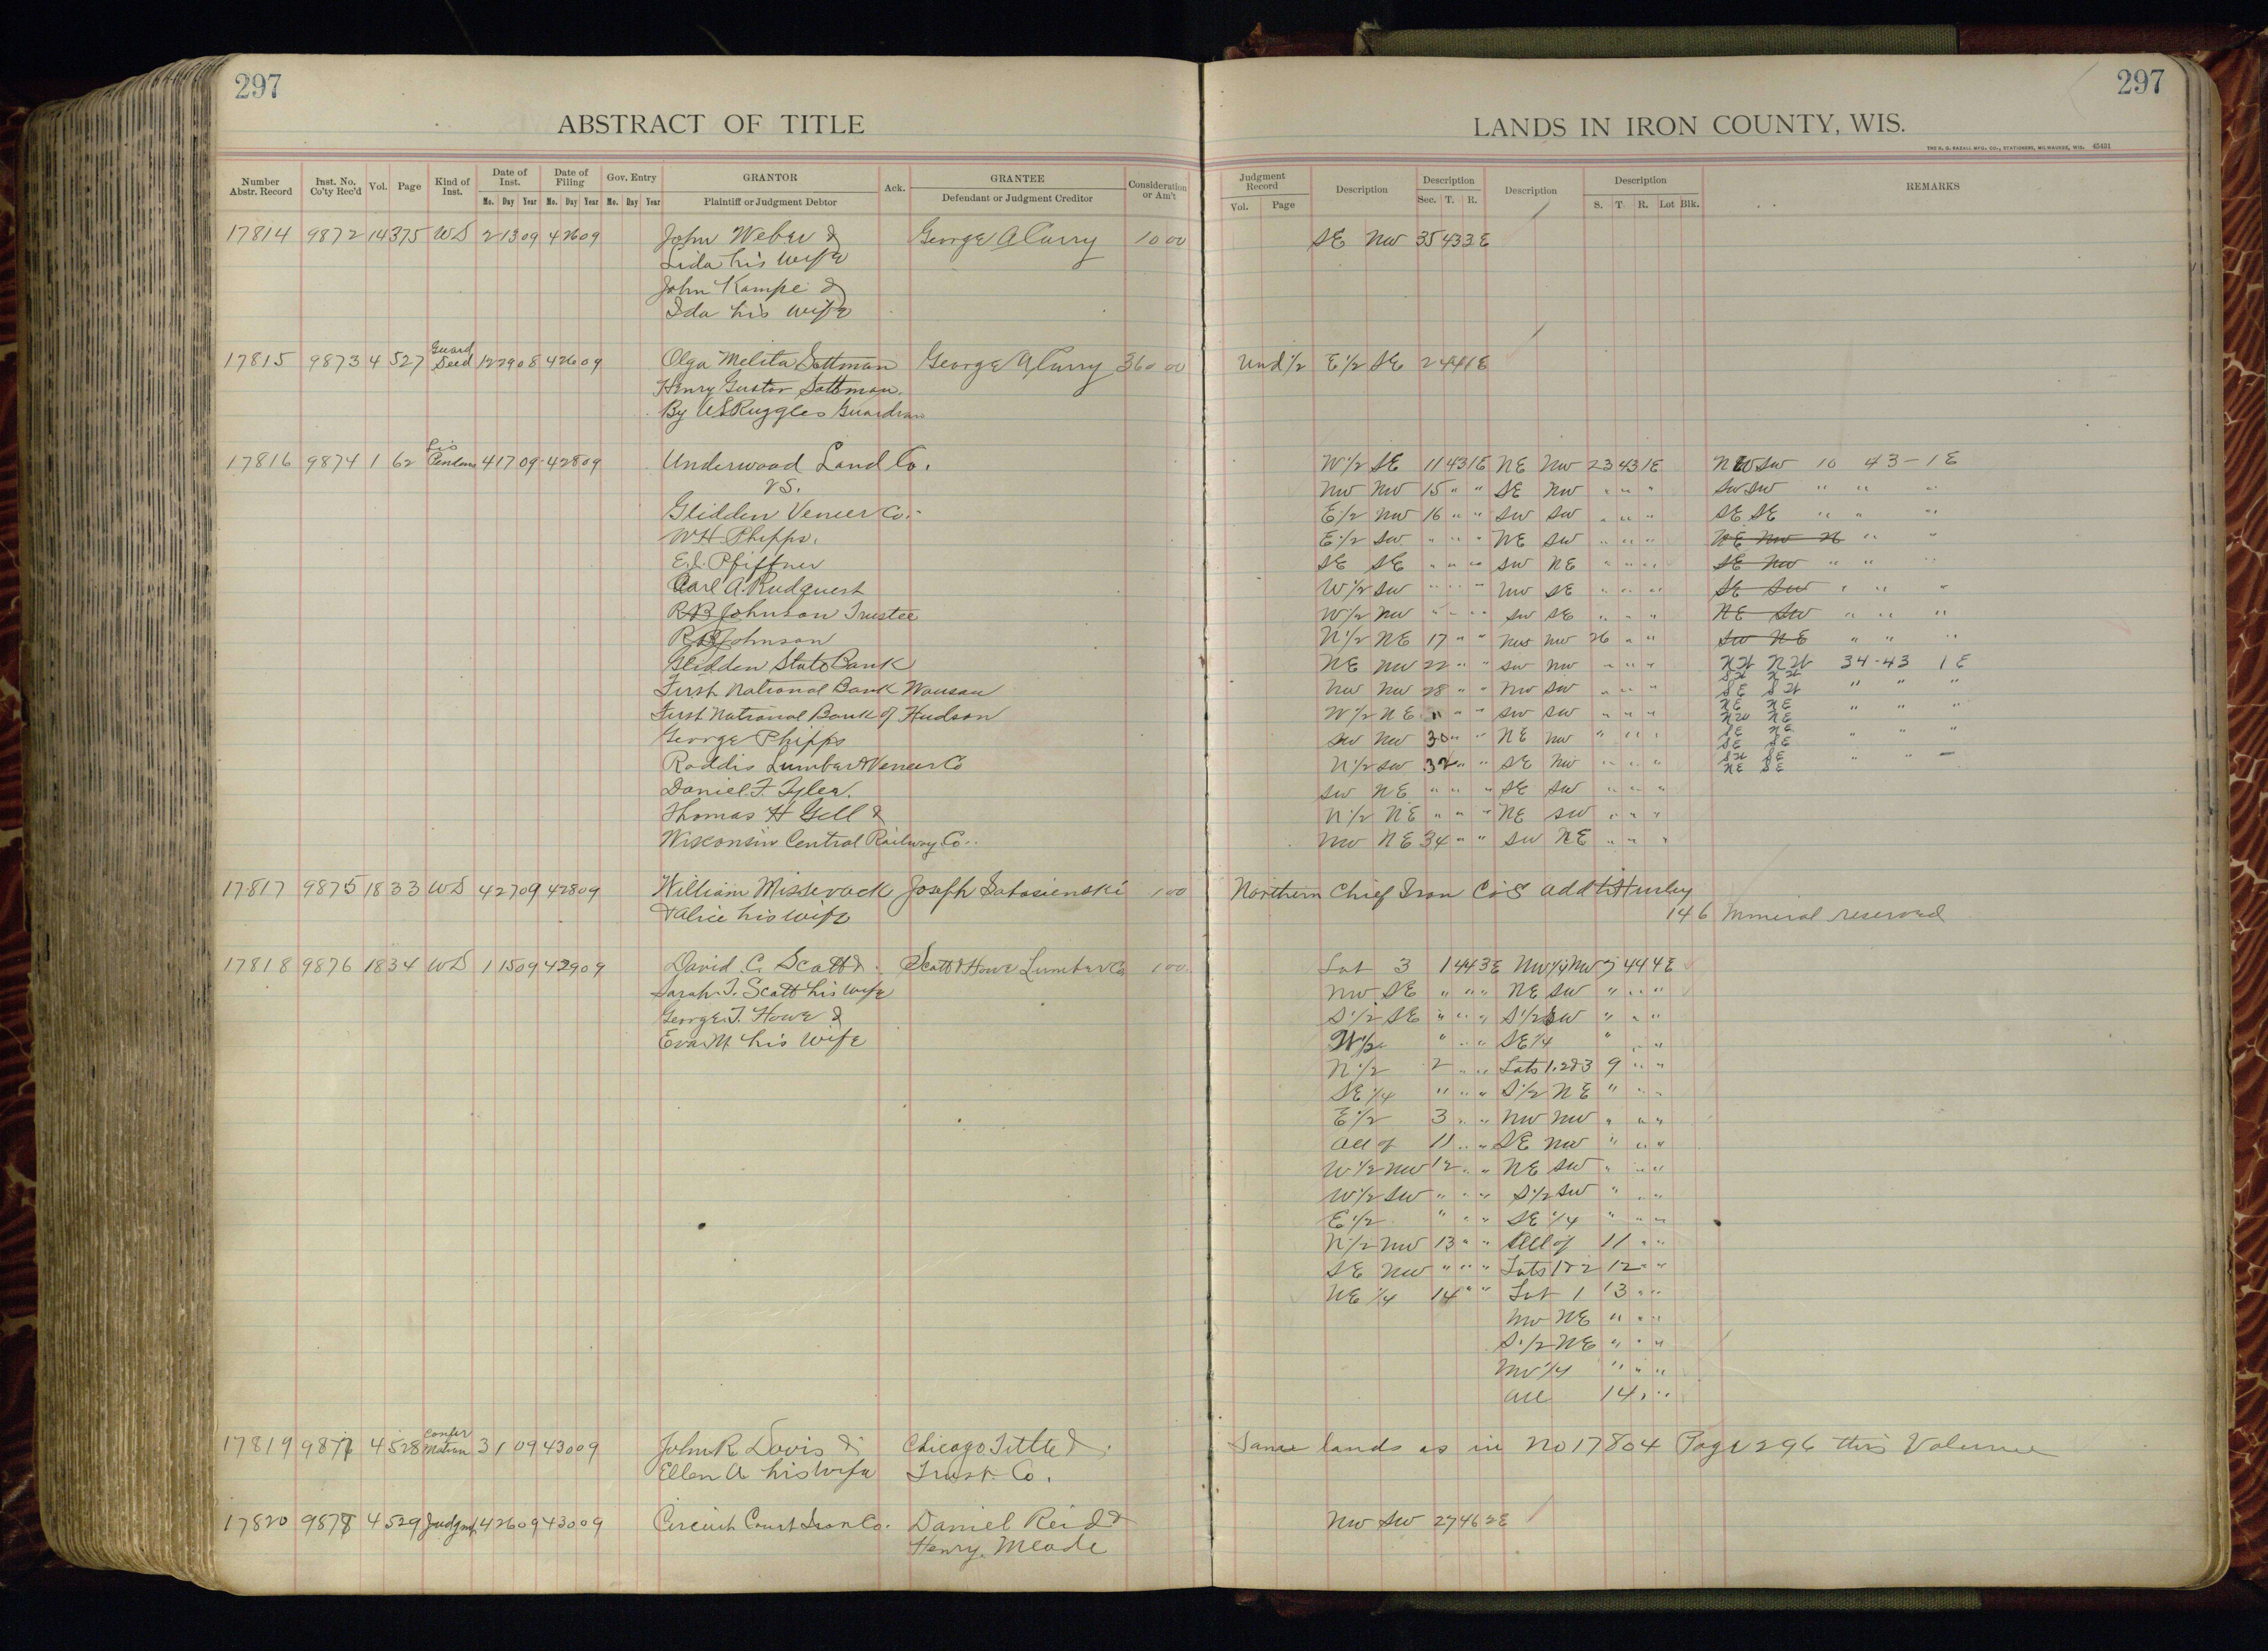 297
ABSTRACT OF TITLE
Number Abstr. Record Inst. No. Co'ty Rec'd Vol. Page Kind of Inst. Date of Inst. Date of Filing Gov. Entry GRANTOR Ack. GRANTEE Consideration or Am't
Mo. Day Year Mo. Day Year Mo. Day Year Plaintiff or Judgment Debtor Defendant or Judgment Creditor
17814 9872 14 375 WD 2 13 09 4 26 09 John Weber & George A Curry 10 00
Lida his wife
John Kampe &
Ida his wife
17815 9873 4 527 Guard Deed 12 29 08 4 26 09 Olga Melita Sottman George A Curry 360 00
Henry Gustav Sottman
By Ruggles Guardian
17816 9874 1 62 Lis Pendens 4 17 09 4 28 09 Underwood Land Co.
vs.
Glidden Veneer Co.
W H Phipps.
E.J. Pfiffner
Carl A. Rudquest
R B Johnson Trustee
R B Johnson
Glidden State Bank
First National Bank Wausau
First National Bank of Hudson
George Phipps
Roddis Lumber & Veneer Co
Daniel F. Tyler.
Thomas H Gill &
Wisconsin Central Railway Co.
17817 9875 18 33 WD 4 27 09 4 28 09 William Missevack Joseph 1 00
& Alice his wife
17818 9876 18 34 WD 1 15 09 4 29 09 David C. Scott & Scott & Howe Lumber Co 1 00
Sarah J. Scott his wife
George T. Howe &
Eva M his wife
17819 9877 4 528 Confermation 3 1 09 4 30 09 John R Davis & Chicago Title &
Ellen A his wife Trust Co.
17820 9878 4 529 Judgmt 4 26 09 4 30 09 Circuit Court Iron Co. Daniel Reid &
Henry Meade
297
LANDS IN IRON COUNTY, WIS.
Judgment Record Description Description Description Description REMARKS
Vol. Page Sec. T. R. S. T. R. Lot Blk.
SE NW 35 43 3E
Und 1/2 E 1/2 SE 24 41 E
W 1/2 SE 11 43 1E NE NW 23 43 1E SW 10 43 - 1 E
NW NW 15 " " SE NW " " " SW SW " " "
E 1/2 NW 16 " " SW SW " " " SE SE " " "
E 1/2 SW " " " NE SW " " " NE NW " "
SE SE " " " SW NE " " " SE NW " " "
W 1/2 SW " " " NW SE " " " SE SW " " "
W 1/2 NW " " " SW SE " " " NE SW " " "
N 1/2 NE 17 " " NW NW 26 " " SW NE " " "
NE NW 22 " " SW NW " " " NW NW 34 - 43 1 E
SW NW
NW NW 28 " " NW SW " " " SE SW " " "
NE NE
W 1/2 NE " " " SW SW " " " NW NE " " "
SE NE
SW NW 30 " " NE NW " " " SE SE " " "
SW SE
N 1/2 SW 32 " " SE NW " " " NE SE " "
SW NE " " " SE SW " " "
N 1/2 NE " " " NE SW " " "
NW NE 34 " " SW NE " " "
Northern Chief Iron Co's add to Hurley
14 6 Mineral reserved
Lot 3 1 44 3E 44 4E
NW SE " " " NE SW " " "
S 1/2 SE " " " S 1/2 SW " " "
W 1/2 " " " SE 1/4 " " "
N 1/2 2 " " Lots 1.2&3 9 " "
SE 1/4 " " " S 1/2 NE " " "
E 1/2 3 " " NW NW " " "
All of 11 " " SE NW " " "
W 1/2 NW 12 " " NE SW " " "
W 1/2 SW " " " S 1/2 SW " " "
E 1/2 " " " SE 1/4 " " "
N 1/2 NW 13 " " All of 11 " "
SE NW " " " Lots 1&2 12 " "
NE 1/4 14 " " Lot 1 13 " "
NW NE " " "
S 1/2 NE " " "
NW 1/4 " " "
All 14 " "
Same lands as in No 17804 Page 296 this Volume
NW SW 27 46 2E